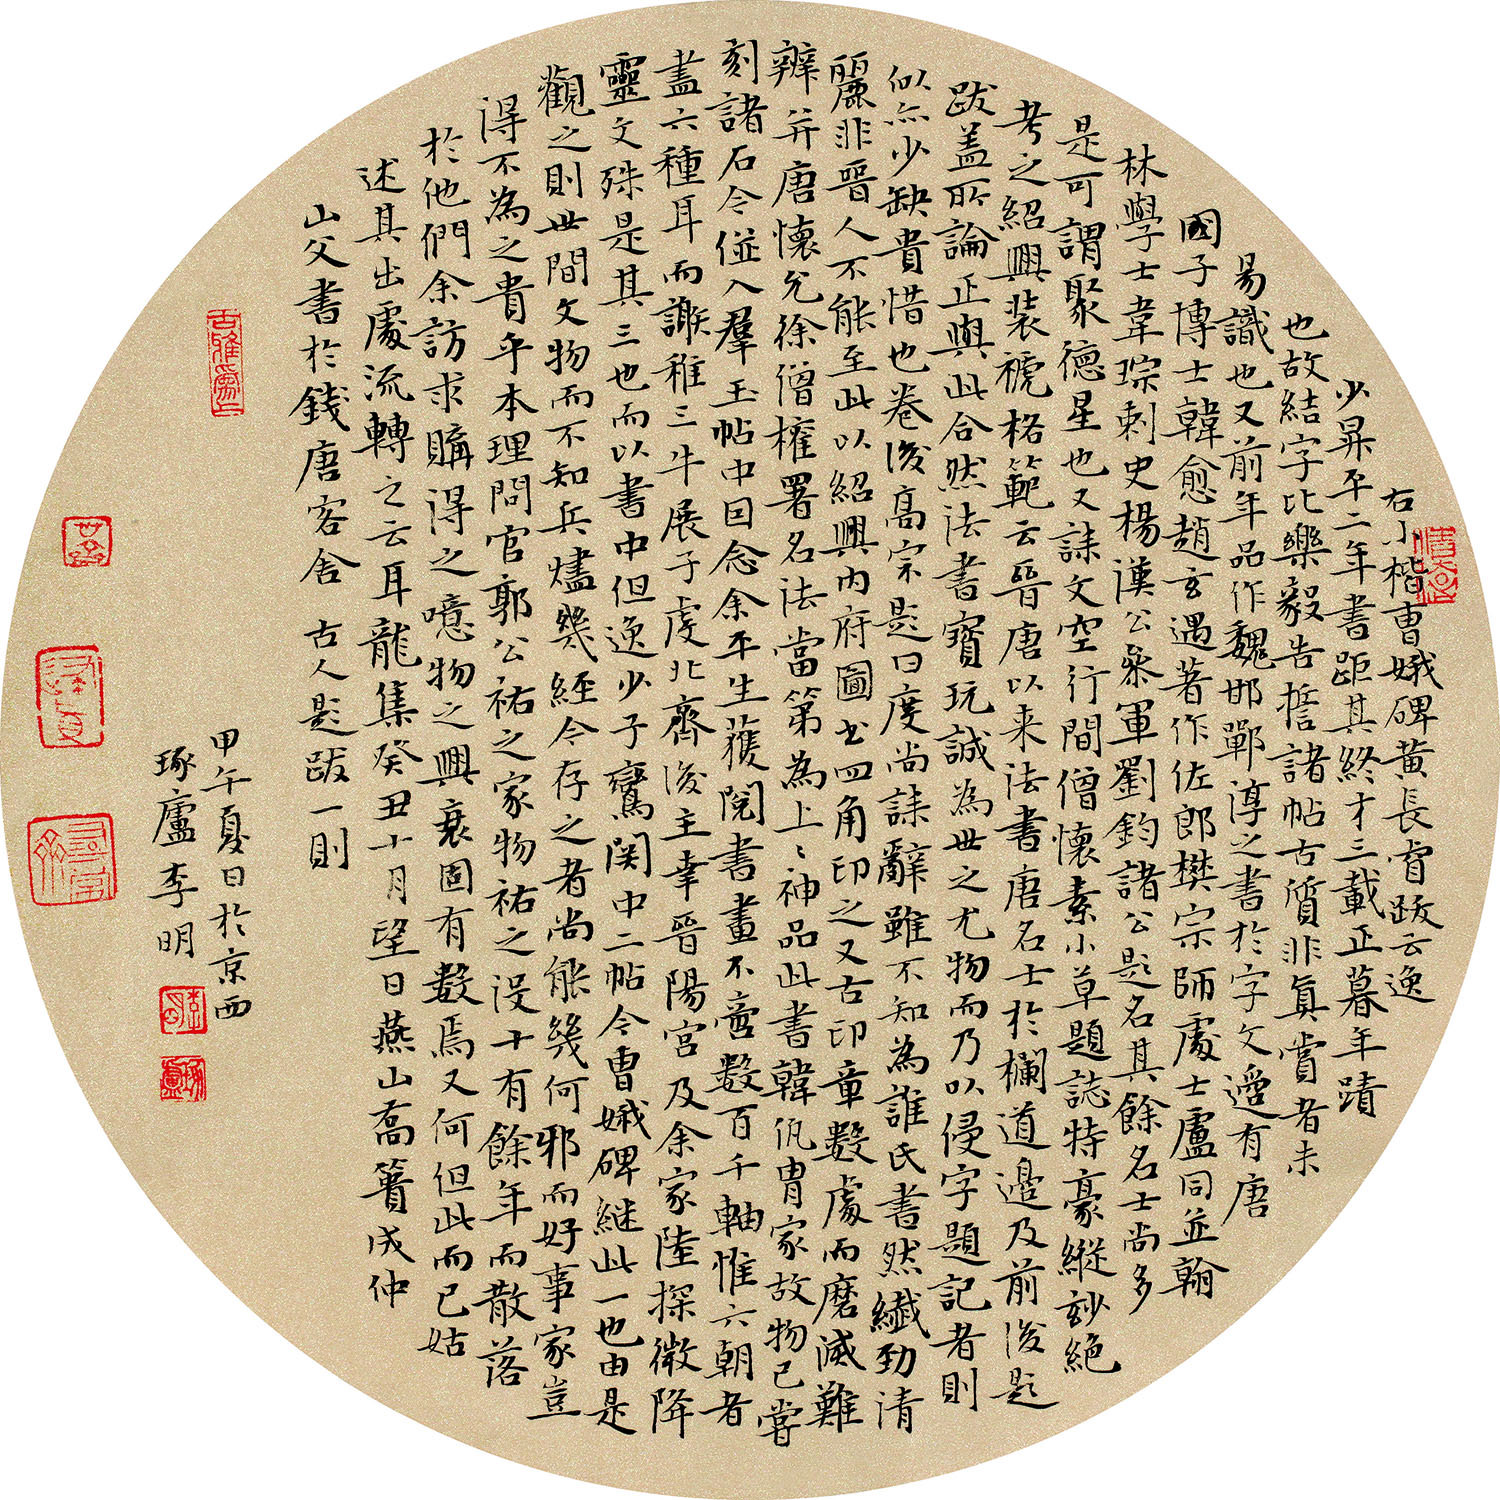 右小楷曹娥碑黄長睿跋云逸
少昇平二年書距其終才三載正暮年蹟
也故結字比樂毅告誓諸帖古質非真賞者未
易識也又前年品作魏邯鄲淳之書於字文邊有唐
國子博士韓愈趙玄遇著作佐郎樊宗師處士盧同並翰
林學士韋琮刺史楊漢公參軍劉鈞諸公題名其餘名士尚多
是可謂聚德星也又謀文空行間僧懷素小草題誌特豪縱妙絶
考之紹興装褫格範云晉唐以来法書唐名士於欄道邊及前後題
跋盖所論正與此合然法書寳玩誠為世之尤物而乃以侵字題記者則
似亦少缺貴惜也卷後高宗題曰度尚誄辭雖不知為誰氏書然纎勁清
麗非晉人不能至此以紹興内府圖書四角印之又古印章數處而磨滅難
辨并唐懷充徐僧權署名法當第為上上神品此書韓侂胄家故物已嘗
刻諸石今僅入羣玉帖中因念余平生獲閲書畫不啻數百千軸惟六朝者
盖六種耳而謝稚三牛展子虔北齊後主幸晉陽宮及余家陸探微降
靈文殊是其三也而以書中但逸少子鸞関中二帖今曹娥碑継此一也由是
觀之則世間文物而不知兵燼幾經今存之者尚能幾何邪而好事家豈
得不為之貴乎本理問官郭公祐之家物祐之没十有餘年而散落
於他們余訪求購得之噫物之興衰固有數焉又何但此而已姑
述其出處流轉之云耳龍集癸丑十月望日燕山喬簣成仲
山父書於錢唐客舍 古人題跋一則
甲午夏日於京西
琢廬李明